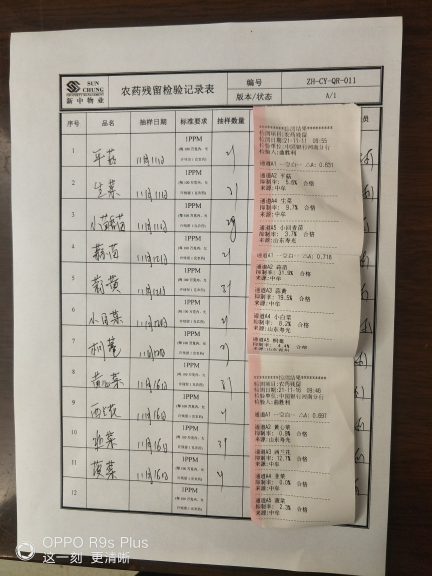 SUN CHUNG
新中物业
农药残留检验记录表
编号
ZH-CY-QR-011
版本/状态
A/1
序号
品名
抽样日期
标准要求
抽样数量
员
1
平菇
11月11日
1PPM
2
生菜
11月11日
1PPM
3
11月11日
1PPM
4
蒜苗
11月12日
1PPM
5
蒜黄
11月12日
1PPM
6
小白菜
11月12日
1PPM
7
茼蒿
11月12日
1PPM
8
黄心菜
11月16日
1PPM
9
西兰花
11月16日
1PPM
10
11月16日
1PPM
11
菠菜
11月16日
1PPM
12
1PPM
检测项目:农药残留
检测日期:21-11-11 09:55
检验单位:中国银行河南分行
通道A1 —空白— △A: 0.631
通道A2 平菇
抑制率: 5.6% 合格
来源:中牟
通道A4 生菜
抑制率: 9.7% 合格
来源:中牟
通道A5 小茴香苗
抑制率: 3.7% 合格
来源:山东寿光
通道A1 —空白— △A: 0.718
通道A2 蒜苗
抑制率: 31.9% 合格
来源:中牟
通道A3 蒜黄
抑制率: 19.5% 合格
来源:中牟
通道A4 小白菜
抑制率: 8.2% 合格
来源:山东寿光
通道A5 茼蒿
抑制率: 4.4% 合格
检测项目:农药残留
检测日期:21-11-16 09:46
检验单位:中国银行河南分行
通道A1 —空白— △A: 0.697
通道A2 黄心菜
抑制率: 0.9% 合格
来源:山东寿光
通道A3 西兰花
抑制率: 12.7% 合格
来源:中牟
抑制率: 0.0% 合格
来源:中牟
通道A5 菠菜
抑制率: 2.3% 合格
来源:中牟
OPPO R9s Plus
这一刻 更清晰